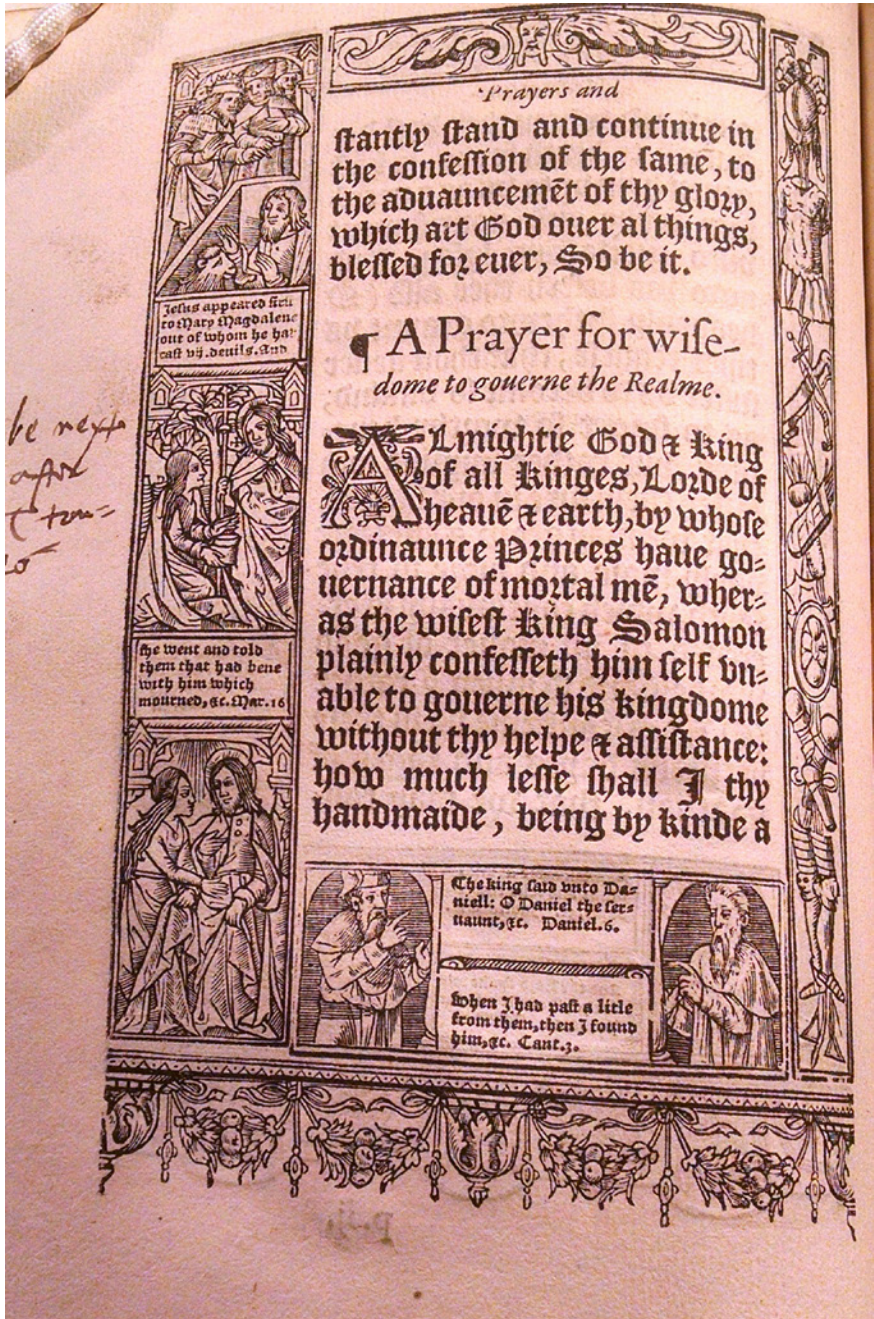 Prayers and
ſtantly ſtand and continue in
the confeſſion of the ſame, to
the aduauncemẽt of thy glory,
which art God ouer al things,
bleſſed for euer, So be it.
¶ A Prayer for wiſe-
dome to gouerne the Realme.
ALmightie God & King
of all Kinges, Lorde of
heauẽ & earth, by whoſe
ordinaunce Princes haue go-
uernance of mortal mẽ, wher-
as the wiſeſt King Salomon
plainly confeſſeth him ſelf vn-
able to gouerne his kingdome
without thy helpe & aſſiſtance:
how much leſſe ſhall I thy
handmaide, being by kinde a
Jeſus appeared
to Mary Magdalene
out of whom he
caſt vij. deuils. And
ſhe went and told
them that had bene
with him which
mourned, &c. Mar. 16
The king ſaid vnto Da-
niell: O Daniel the ſer-
uaunt, &c. Daniel. 6.
When I had paſt a litle
from them, then I found
him, &c. Cant. 3.
be next
after